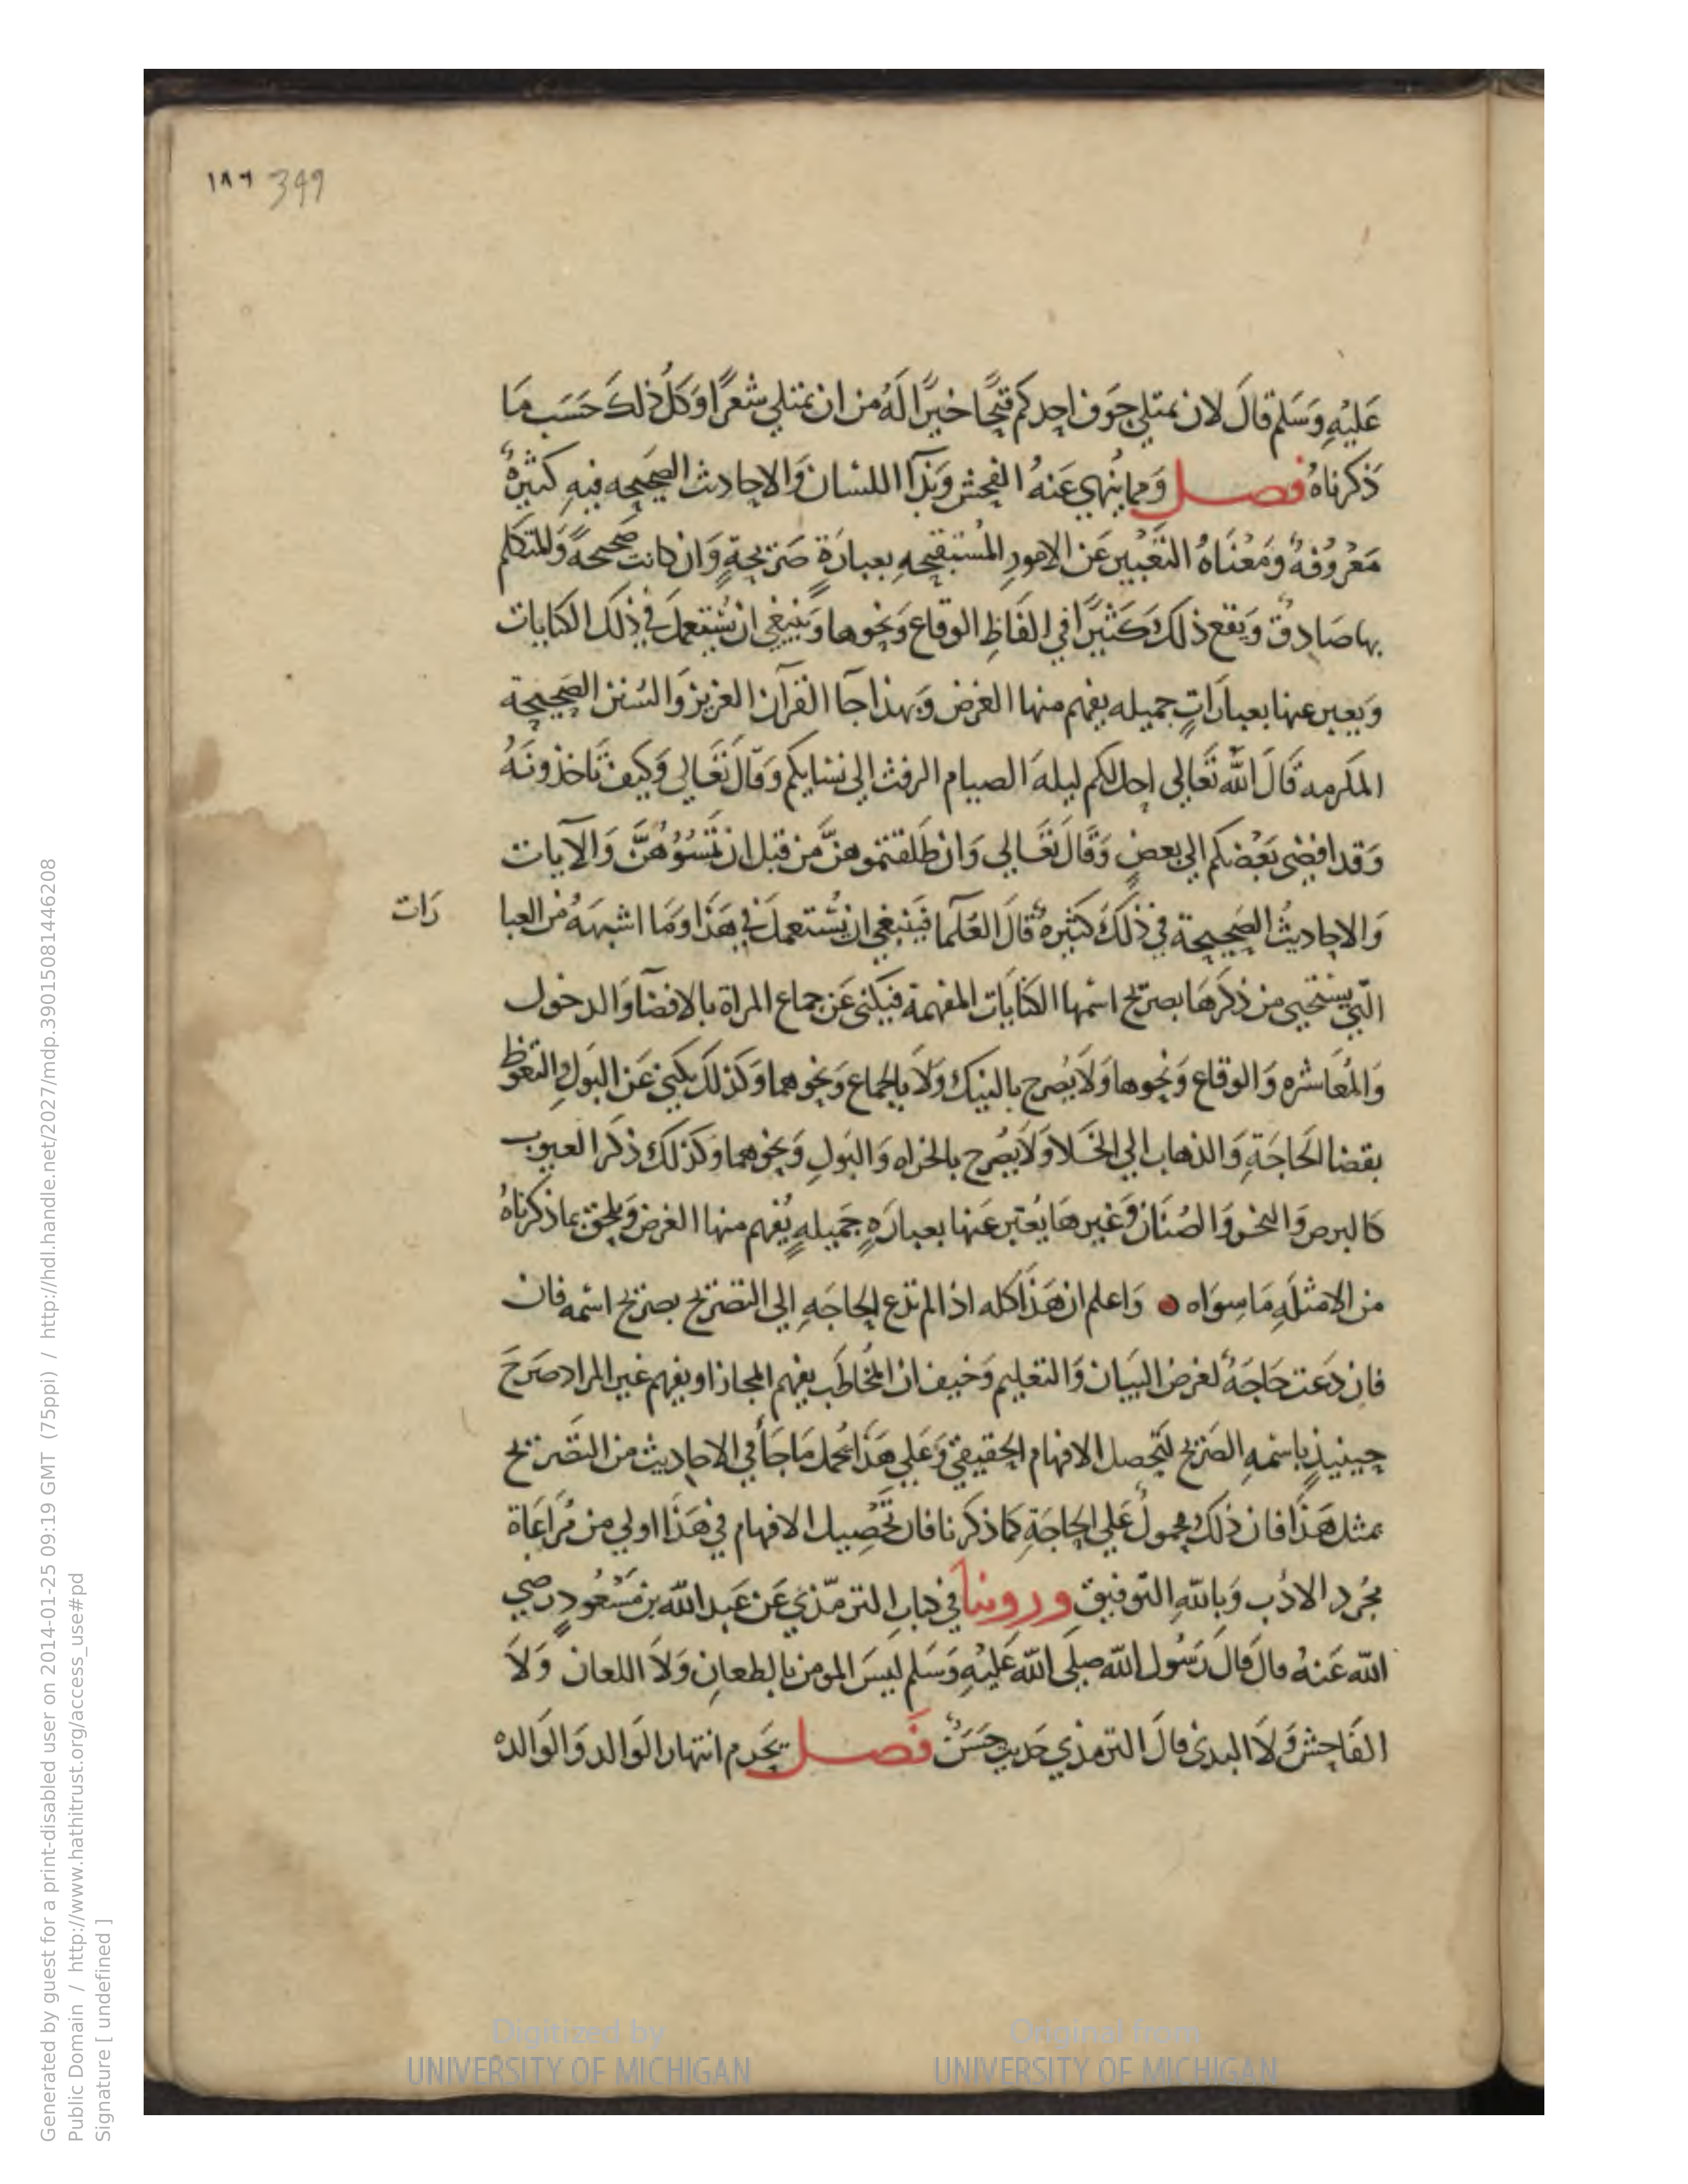 ١٨٦ 349
عَليْهِ وَسَلم قالَ لان يمتلي جَوف احدكم قيحًا خيرًا لَهُ من ان يمتلي شعرًا وَكلُ ذلكَ حَسَب مَا
ذكرناهُ فصل وَمما يُنهي عَنهُ الفحش وَبَذآ اللسان وَالاحاديث الصحيحه فيهِ كثيرةٌ
مَعْروُفةٌ وَمَعْنَاهُ التَعْبيْر عَن الامورِ المُستقبحهِ بعبارَةٍ صَريحةٍ وَان كانت صَحيحةً وَالمتكلم
بها صَادِقٌ وَيقع ذلكَ كَثيْرًا في الفَاظِ الوقاع وَنحوها وَينبَغي ان يُستَعملَ في ذلكَ الكنايات
وَيعبر عنها بعبارَاتٍ جميله يفهم منها الغرض وَبهذا جآ القرآن العزيز وَالسُنن الصَحيحة
المكرمه قَالَ اللّه تعَالي احل لكم ليلهَ الصيام الرفث الي نسايكم وَقالَ تعَالي وَكيف تَاخذونَهُ
وَقد افضي بَعْضكم الي بعضٍ وَقَالَ تعَالي وَان طَلقتموهنَّ من قبل ان تَمسُّوُهُنَّ وَالآيات
وَالاحاديثُ الصَحيحة في ذلكَ كَثيرةٌ قالَ العُلَمآ فيَنبغي ان يُستعملَ في هَذا وَمَا اشبهَهُ من العبا
رَات
التي يستحيي من ذكرهَا بصريح اسمها الكنايَات المفهمة فيكني عَن جماع المراة بالافضآ وَالدخول
وَالمُعَاشره وَالوقاع وَنحوها وَلَا يُصرح بالنيك وَلَا بالجماع وَنحوهما وَكذلكَ يكني عَن البَولِ وَالتغوط
بقضا الحَاجَةِ وَالذهاب الي الخَلا وَلَا يُصرح بالخراه وَالبَولِ وَنحوهما وَكذلكَ ذكر العيوب
كالبرص وَالبخر وَالصُنَان وَغيرهَا يُعَبر عَنها بعبارَهٍ جَميلهٍ يُفهم منها الغرض وَيلحق بما ذكرناهُ
من الامثلَهِ مَا سِوَاه وَاعلم ان هَذَا كله اذا لم تدع الحاجَه الي التصريح بصريح اسمه فان
فان دَعَت حَاجَةٌ لغرض البَيان وَالتعليم وَخيف ان المُخاطَب يفهم المجاز او يفهم غير المراد صَرحَ
حينيذٍ باسْمهِ الصَريح لتَحصل الافهام الحقيقي وَعَلي هَذا يُحمل مَا جَأ في الاحاديث من التصريح
بمثل هَذَا فان ذلكَ محمولٌ عَلي الحاجَةِ كما ذكرنا فان تَحْصِيل الافهام في هَذَا اولي من مُرَاعَاة
مجُرد الادَب وَباللّهِ التوفيق وروينا في كتاب الترمّذي عَن عَبد اللّه بن مَسْعُودٍ رضي
اللّه عَنهُ قال قالَ رَسُول اللّه صلي اللّه عَليْهِ وَسَلم ليسَ المومن بالطعانِ وَلَا اللعان وَلَا
الفَاحش وَلَا البذي قالَ الترمذي حَديث حسَنٌ فَصل يَحرم انتهار الوَالد وَالوَالده
Generated by guest for a print-disabled user on 2014-01-25 09:19 GMT (75ppi) / http://hdl.handle.net/2027/mdp.39015081446208
Public Domain / http://www.hathitrust.org/access_use#pd
Signature [ undefined ]
Digitized by
UNIVERSITY OF MICHIGAN
Original from
UNIVERSITY OF MICHIGAN